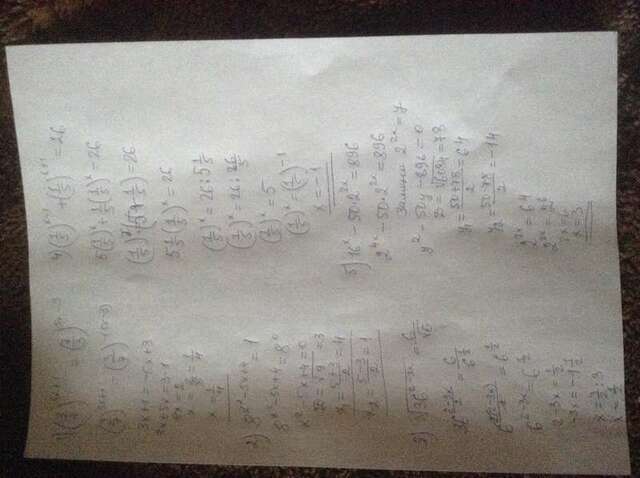 1) (3/7)^(3x+1) = (7/3)^(5x-3)
(3/7)^(3x+1) = (3/7)^(-(5x-3))
3x+1 = -5x+3
3x+5x = 3-1
8x = 2
x = 2/8 = 1/4
x = 1/4
2) 8^(x²-5x+4) = 1
8^(x²-5x+4) = 8⁰
x²-5x+4=0
D = √9 = 3
x₁ = (5+3)/2 = 4
x₂ = (5-3)/2 = 1
3) √(36^(2-3x)) = 6/√6
36^((2-3x)/2) = 6/6^(1/2)
6^(2(2-3x)/2) = 6^(1/2)
6^(2-3x) = 6^(1/2)
2-3x = 1/2
-3x = -1 1/2
x = 3/2 : 3
x = 1/2
4) (1/5)^(x-1) + (1/5)^(x+1) = 26
5(1/5)^x + 1/5(1/5)^x = 26
(1/5)^x (5+1/5) = 26
5 1/5 (1/5)^x = 26
(1/5)^x = 26 : 5 1/5
(1/5)^x = 26 : 26/5
(1/5)^x = 5
(1/5)^x = (1/5)^(-1)
x = -1
5) 16^x - 50·2^(2x) = 896
2^(4x) - 50·2^(2x) = 896
Замена 2^(2x) = y
y² - 50y - 896 = 0
y₁ = (50+78)/2 = 64
y₂ = (50-78)/2 = -14
2^(2x) = 64
2^(2x) = 2⁶
2x = 6
x = 3